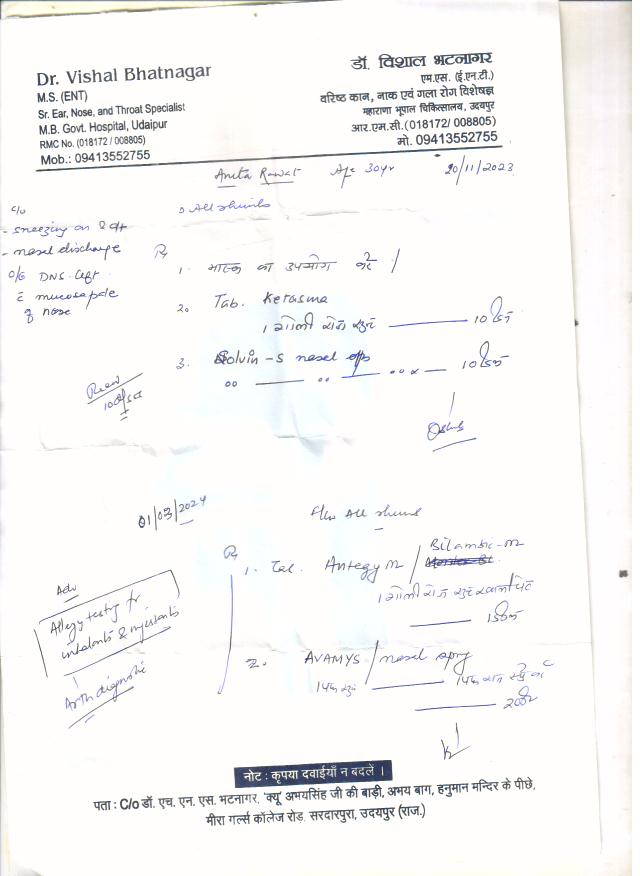 Dr. Vishal Bhatnagar
M.S. (ENT)
Sr. Ear, Nose, and Throat Specialist
M.B. Govt. Hospital, Udaipur
RMC No. (018172 / 008805)
Mob.: 09413552755
डॉ. विशाल भटनागर
एम.एस. (ई.एन.टी.)
वरिष्ठ कान, नाक एवं गला रोग विशेषज्ञ
महाराणा भूपाल चिकित्सालय, उदयपुर
आर.एम.सी. (018172/ 008805)
मो. 09413552755
Anita Rawat Age 30yr 20/11/2023
c/o
- sneezing on & off
- nasal discharge
O/E DNS left
c̄ mucosa pale
of nose
Rx
1. मास्क का उपयोग करें
2. Tab. Ketasma
1 गोली रोज सुबह 10 दिन
3. Solvin-S nasal drops
10 दिन
01/03/2024
Rx
1. Tab. Antegy M / Bilambic-M
1 गोली रोज 15 दिन
2. AVAMYS / nasal spray
Adv
Allergy testing for
inhalants & ingestants
Arth diagnostic
नोट : कृपया दवाईयाँ न बदलें ।
पता : C/o डॉ. एच. एन. एस. भटनागर, 'क्यू' अभयसिंह जी की बाड़ी, अभय बाग, हनुमान मन्दिर के पीछे,
मीरा गर्ल्स कॉलेज रोड, सरदारपुरा, उदयपुर (राज.)